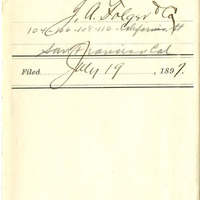 J. A. Folger & Co
104-106-108-110-California St
San Francisco Cal
Filed July 19, 1897.